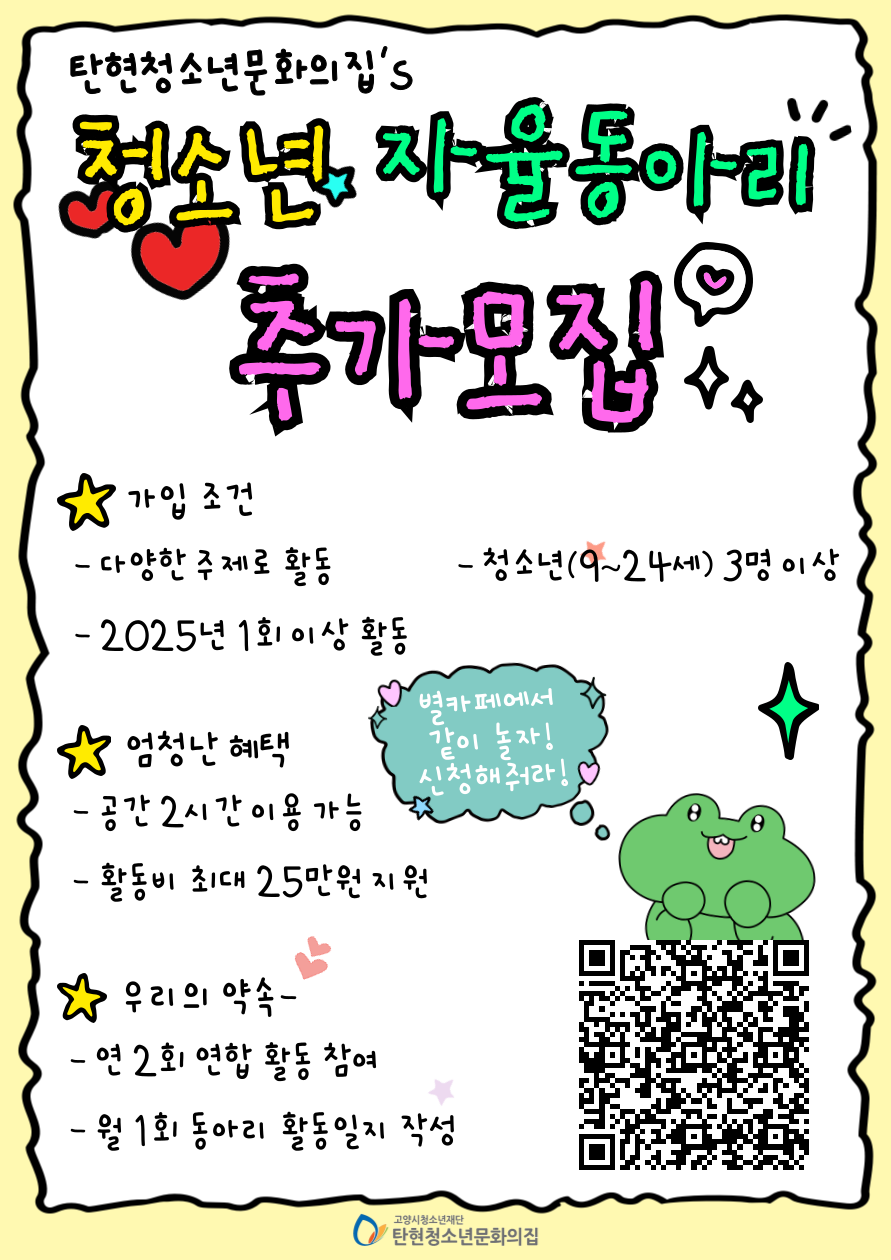 탄현청소년문화의집's
청소년 자율동아리
추가모집
가입 조건
- 다양한 주제로 활동
- 청소년(9~24세) 3명 이상
- 2025년 1회 이상 활동
별카페에서
같이 놀자!
신청해줘라!
엄청난 혜택
- 공간 2시간 이용 가능
- 활동비 최대 25만원 지원
우리의 약속-
- 연 2회 연합 활동 참여
- 월 1회 동아리 활동일지 작성
고양시청소년재단
탄현청소년문화의집